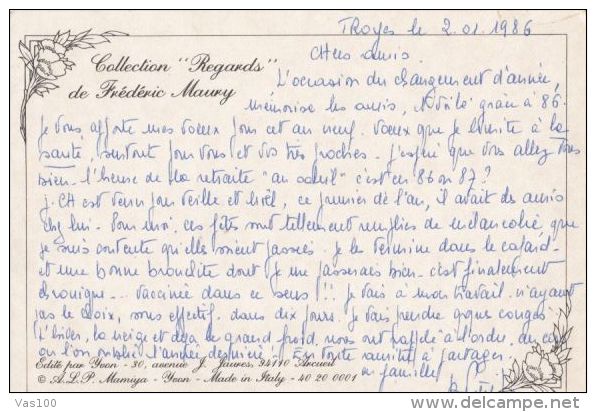 Troyes le 2.01.1986
Chers amis.
Collection "Regards"
de Frédéric Maury
L'occasion du changement d'année,
mémorise les amis, Voilà grâce à 86.
Je vous apporte mes voeux pour cet an neuf. Voeux que je limite à la
santé, surtout pour vous et vos très proches. J'espère que vous allez tous
bien - l'heure de la retraite "au soleil" c'est en 86 ou 87?
J. CH est venu pour veille et Noël, ce premier de l'an, il avait des amis
chez lui - Pour moi, ces fêtes sont tellement remplies de mélancolie, que
je suis contente qu'elles soient passées - je les termine dans le cafard -
et une bonne bronchite dont je me passerais bien - c'est finalement
chronique - - vaccinée dans ce sens!!! Je vais à mon travail n'ayant
pas le choix, sous effectif. dans dix jours. Je vais prendre quques congés
L'hiver, la neige et déjà le grand froid, nous ont rappelé à l'ordre, au cas
où l'on oublie l'année dernière - En toute amitié à partager -
en famille
Edité par Yvon - 30, avenue J. Jaurès, 94110 Arcueil
© A.L.P. Mamiya - Yvon - Made in Italy - 40 20 0001
Vas100
delcampe.net